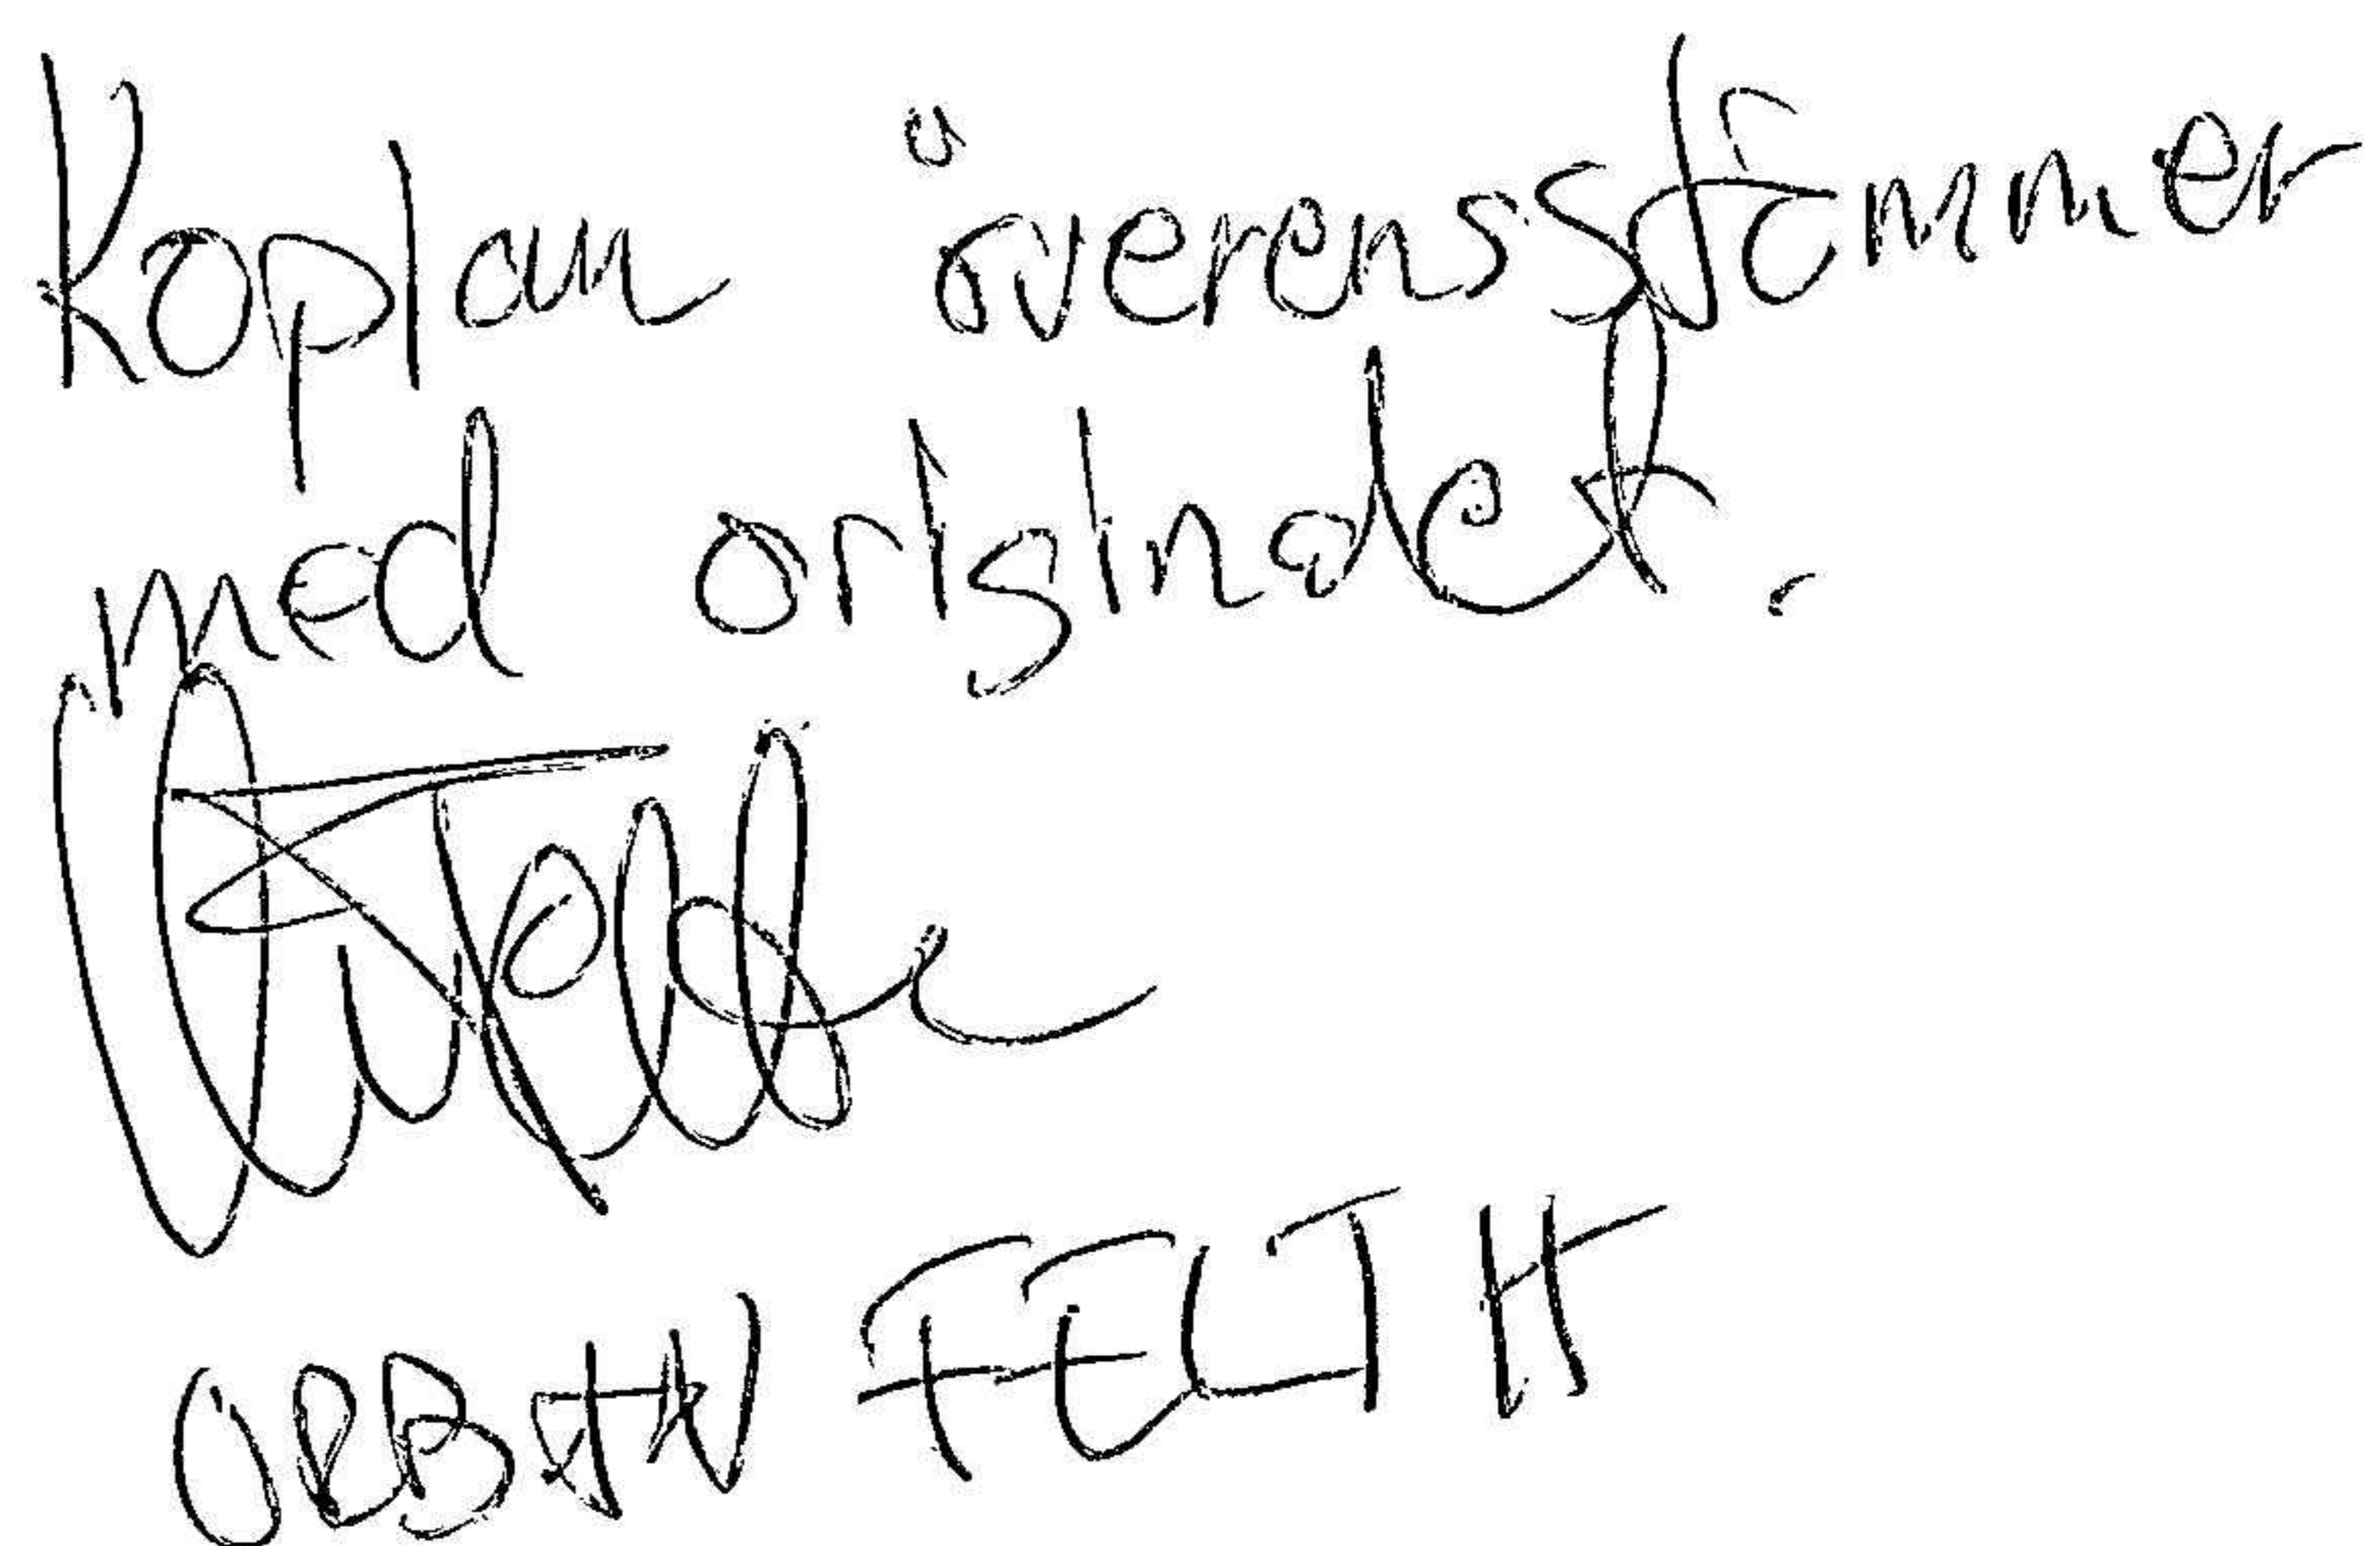 Kopian överensstämmer
med originalet.
ORBAN FELTH